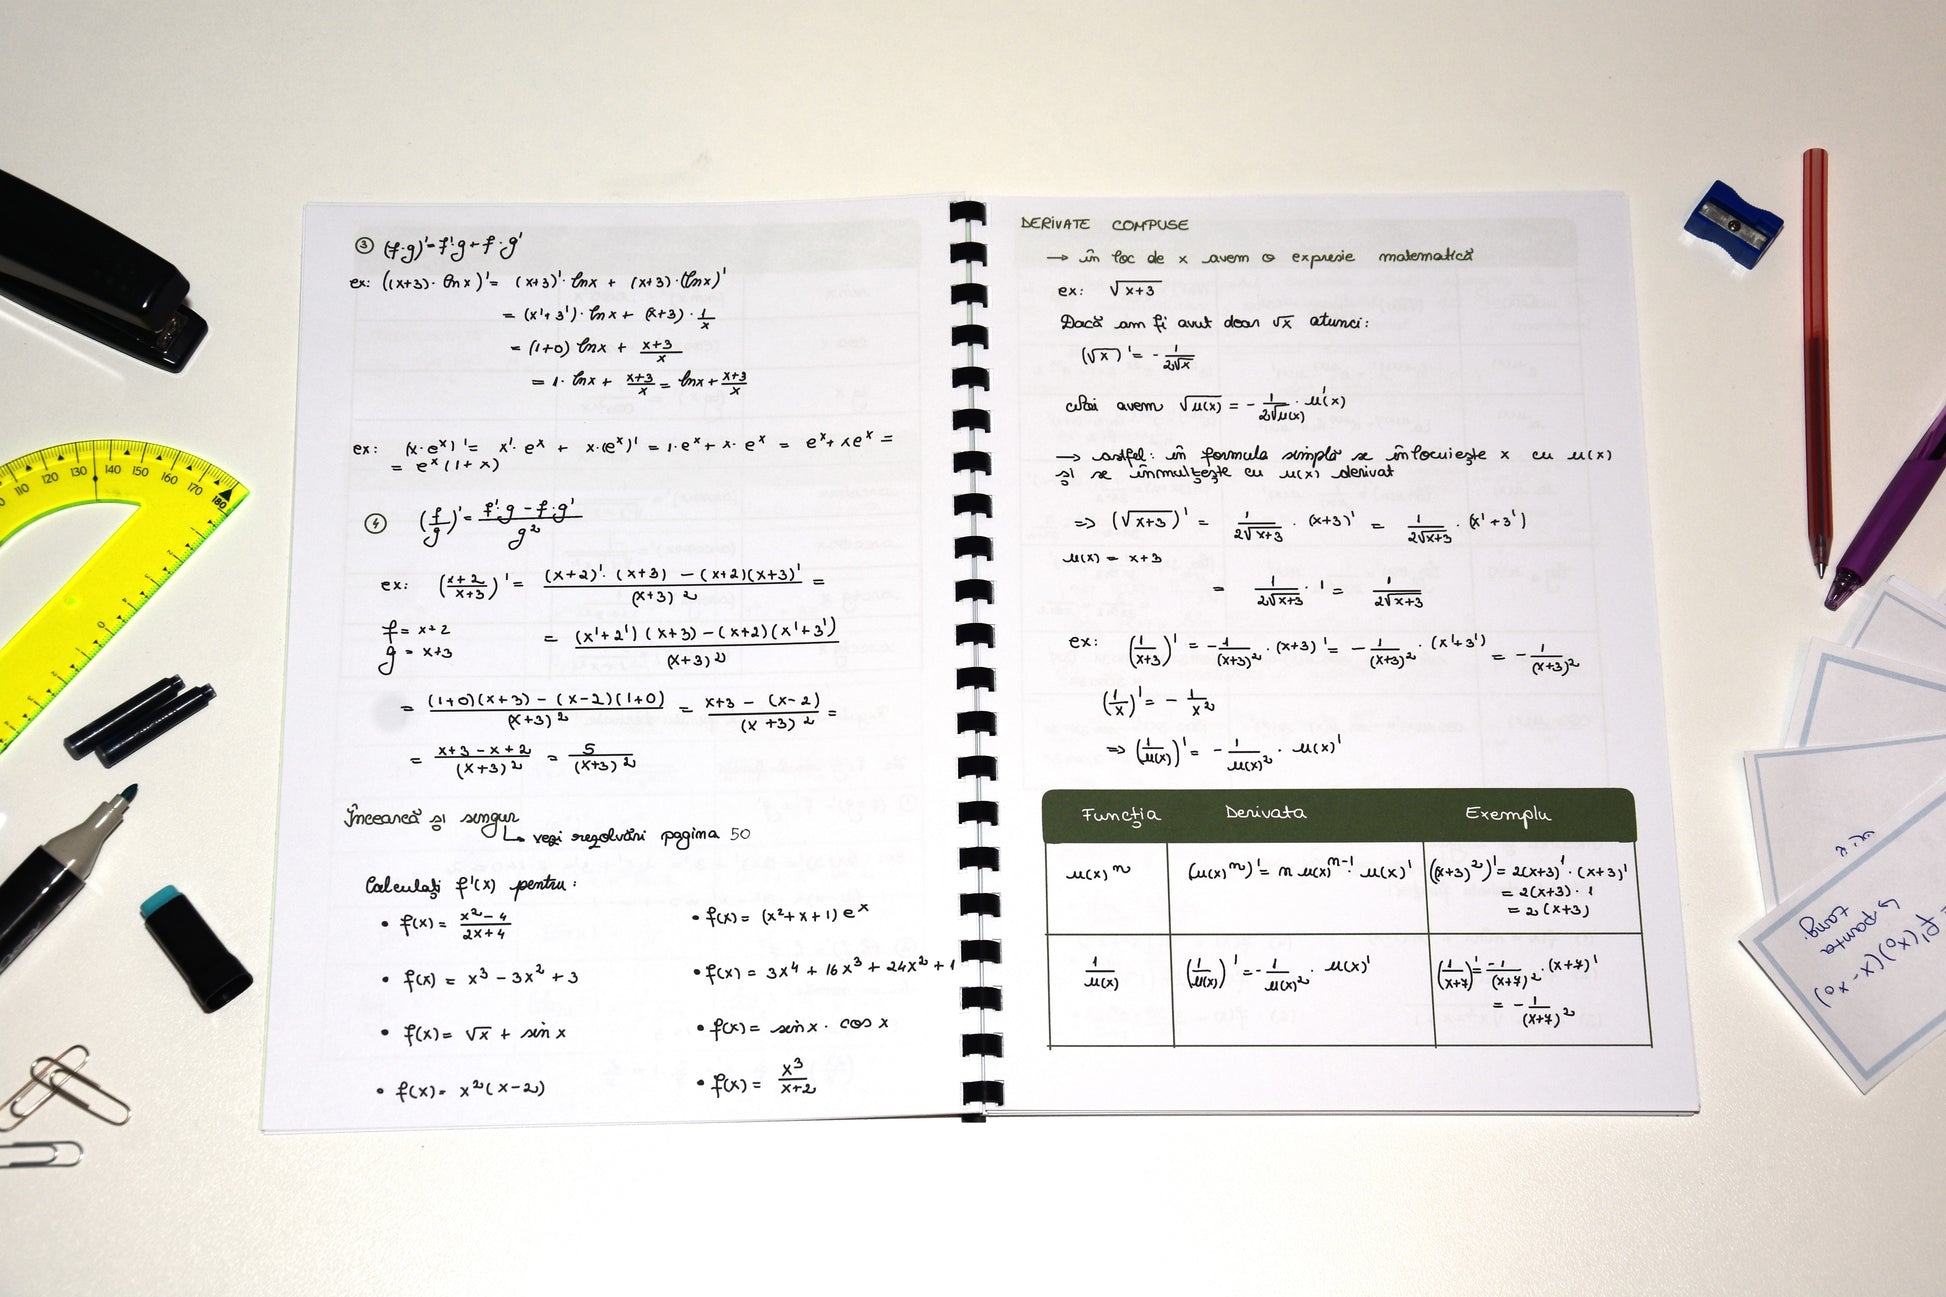 ③ (f·g)'=f'·g+f·g'
ex: ((x+3)·lnx)'= (x+3)'·lnx + (x+3)·(lnx)'
= (x'+3')·lnx + (x+3)·1/x
= (1+0) lnx + (x+3)/x
= 1·lnx + (x+3)/x = lnx + (x+3)/x
ex: (x·eˣ)'= x'·eˣ + x·(eˣ)' = 1·eˣ + x·eˣ = eˣ + xeˣ =
= eˣ(1+x)
④ (f/g)'= (f'·g - f·g')/g²
ex: ((x+2)/(x+3))'= ((x+2)'·(x+3) - (x+2)(x+3)')/(x+3)² =
f = x+2
g = x+3
= ((x'+2')(x+3) - (x+2)(x'+3'))/(x+3)²
= ((1+0)(x+3) - (x-2)(1+0))/(x+3)² = (x+3 - (x-2))/(x+3)² =
= (x+3-x+2)/(x+3)² = 5/(x+3)²
Încearcă și singur
↳ vezi rezolvări pagina 50
Calculați f'(x) pentru:
• f(x)= (x²-4)/(2x+4)
• f(x)= (x²+x+1)eˣ
• f(x) = x³ - 3x² + 3
• f(x) = 3x⁴ + 16x³ + 24x² + 1
• f(x)= √x + sin x
• f(x)= sinx · cos x
• f(x)= x²(x-2)
• f(x)= x³/(x+2)
DERIVATE COMPUSE
→ în loc de x avem o expresie matematică
ex: √(x+3)
Dacă am fi avut doar √x atunci:
(√x)'= - 1/(2√x)
Noi avem √u(x) = - 1/(2√u(x)) · u'(x)
→ astfel: în formula simplă se înlocuiește x cu u(x)
și se înmulțește cu u(x) derivat
=> (√(x+3))' = 1/(2√(x+3)) · (x+3)' = 1/(2√(x+3)) · (x'+3')
u(x) = x+3
= 1/(2√(x+3)) · 1 = 1/(2√(x+3))
ex: (1/(x+3))' = -1/(x+3)² · (x+3)' = -1/(x+3)² · (x'+3') = -1/(x+3)²
(1/x)'= - 1/x²
=> (1/u(x))'= - 1/u(x)² · u(x)'
Funcția Derivata Exemplu
u(x)ⁿ (u(x)ⁿ)'= n u(x)ⁿ⁻¹· u(x)' ((x+3)²)'= 2(x+3)'·(x+3)'
= 2(x+3)·1
= 2(x+3)
1/u(x) (1/u(x))'= -1/u(x)² · u(x)' (1/(x+7))'= -1/(x+7)² · (x+7)'
= -1/(x+7)²
= f'(x₀)(x-x₀)
↳ panta
tang.
110 120 130 140 150 160 170 180
0